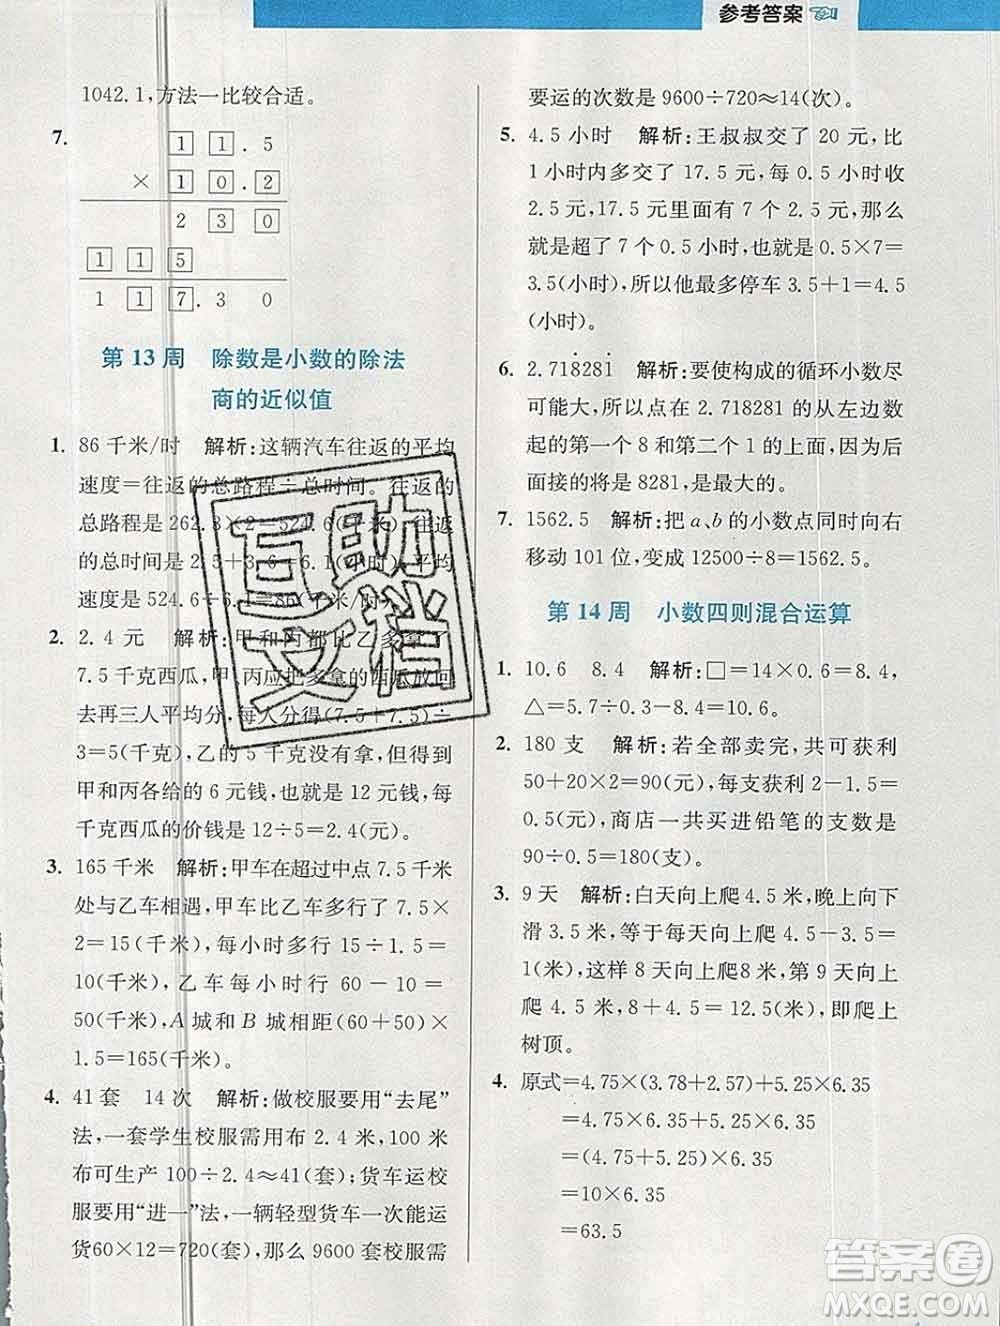 参考答案
1042.1,方法一比较合适。
7.
1 1.5
× 1 0.2
2 3 0
1 1 5
1 1 7.3 0
第 13 周 除数是小数的除法
商的近似值
1. 86 千米/时 解析:这辆汽车往返的平均
速度=往返的总路程÷总时间。往返的
总路程是 262.3×2=524.6(千米),往返
的总时间是 2.5+3.6=6.1(小时),平均
速度是 524.6÷6.1=86(千米/时)。
2. 2.4 元 解析:甲和丙都比乙多拿了
7.5 千克西瓜,甲、丙应把多拿的西瓜放回
去再三人平均分,每人分得(7.5+7.5)÷
3=5(千克),乙的 5 千克没有拿,所以
甲和丙各给的 6 元钱,一共是 12 元钱,每
千克西瓜的价钱是 12÷5=2.4(元)。
3. 165 千米 解析:甲车在超过中点 7.5 千米
处与乙车相遇,甲车比乙车多行了 7.5×
2=15(千米),每小时多行 15÷1.5=
10(千米),乙车每小时行 60-10=
50(千米),A 城和 B 城相距(60+50)×
1.5=165(千米)。
4. 41 套 14 次 解析:做校服要用“去尾”
法,一套学生校服需用布 2.4 米,100 米
布可生产 100÷2.4≈41(套);货车运校
服要用“进一”法,一辆轻型货车一次能运
货60×12=720(套),那么 9600 套校服需
要运的次数是 9600÷720≈14(次)。
5. 4.5 小时 解析:王叔叔交了 20 元,比
1 小时内多交了 17.5 元,每 0.5 小时收
2.5 元,17.5 元里面有 7 个 2.5 元,那么
就是超了 7 个 0.5 小时,也就是 0.5×7=
3.5(小时),所以他最多停车 3.5+1=4.5
(小时)。
6. 2.71̇8281̇ 解析:要使构成的循环小数尽
可能大,所以点在 2.718281 的从左边数
起的第一个 8 和第二个 1 的上面,因为后
面接的将是 8281,是最大的。
7. 1562.5 解析:把 a、b 的小数点同时向右
移动 101 位,变成 12500÷8=1562.5。
第 14 周 小数四则混合运算
1. 10.6 8.4 解析:□=14×0.6=8.4,
△=5.7÷0.3-8.4=10.6。
2. 180 支 解析:若全部卖完,共可获利
50+20×2=90(元),每支获利 2-1.5=
0.5(元),商店一共买进铅笔的支数是
90÷0.5=180(支)。
3. 9 天 解析:白天向上爬 4.5 米,晚上下
滑 3.5 米,等于每天向上爬 4.5-3.5=
1(米),这样 8 天向上爬8米,第 9 天向上
爬 4.5 米,8+4.5=12.5(米),即爬上
树顶。
4. 原式=4.75×(3.78+2.57)+5.25×6.35
=4.75×6.35+5.25×6.35
=(4.75+5.25)×6.35
=10×6.35
=63.5
互助
文档
答案圈
MXQE.COM